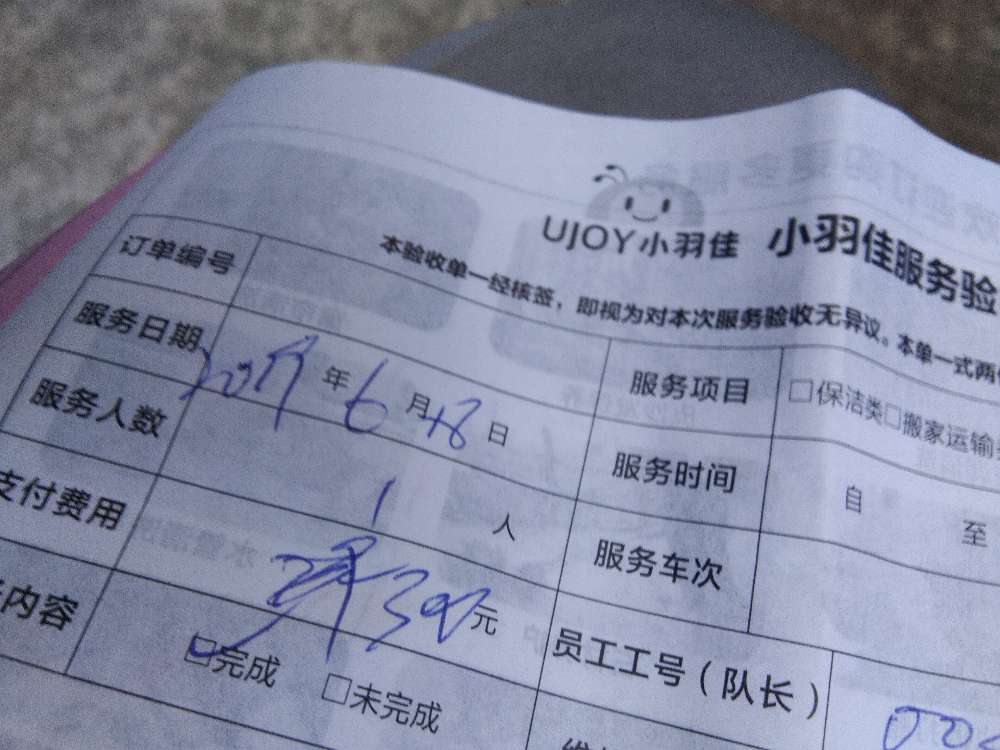 UJOY小羽佳 小羽佳服务验
本验收单一经核签，即视为对本次服务验收无异议。本单一式两
订单编号
服务项目 □保洁类□搬家运输
服务日期 年6月18日
服务时间 自 至
服务人数 1人
服务车次
支付费用 元
员工工号（队长）
内容 □完成 □未完成